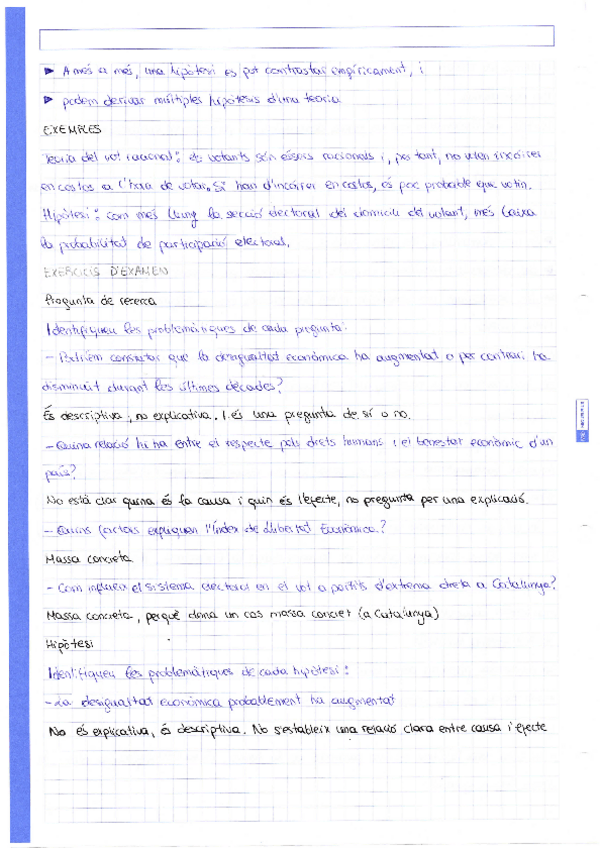 ▶ A més a més, una hipòtesi es pot contrastar empíricament, i
▶ podem derivar múltiples hipòtesis d'una teoria
EXEMPLES
Teoria del vot racional: els votants són éssers racionals i, per tant, no volen incórrer
en costos a l'hora de votar. Si han d'incórrer en costos, és poc probable que votin.
Hipòtesi: com més lluny la secció electoral del domicili del votant, més baixa
la probabilitat de participació electoral.
EXERCICIS D'EXAMEN
Pregunta de recerca
Identifiqueu les problemàtiques de cada pregunta:
- Podríem constatar que la desigualtat econòmica ha augmentat o per contrari ha
disminuït durant les últimes dècades?
És descriptiva, no explicativa. I és una pregunta de sí o no.
- Quina relació hi ha entre el respecte pels drets humans i el benestar econòmic d'un
país?
No està clar quina és la causa i quin és l'efecte, no pregunta per una explicació.
- Quins factors expliquen l'Índex de Llibertat Econòmica?
Massa concreta
- Com influeix el sistema electoral en el vot a partits d'extrema dreta a Catalunya?
Massa concreta, perquè dona un cas massa concret (a Catalunya)
Hipòtesi
Identifiqueu les problemàtiques de cada hipòtesi:
- La desigualtat econòmica probablement ha augmentat
No és explicativa, és descriptiva. No s'estableix una relació clara entre causa i efecte